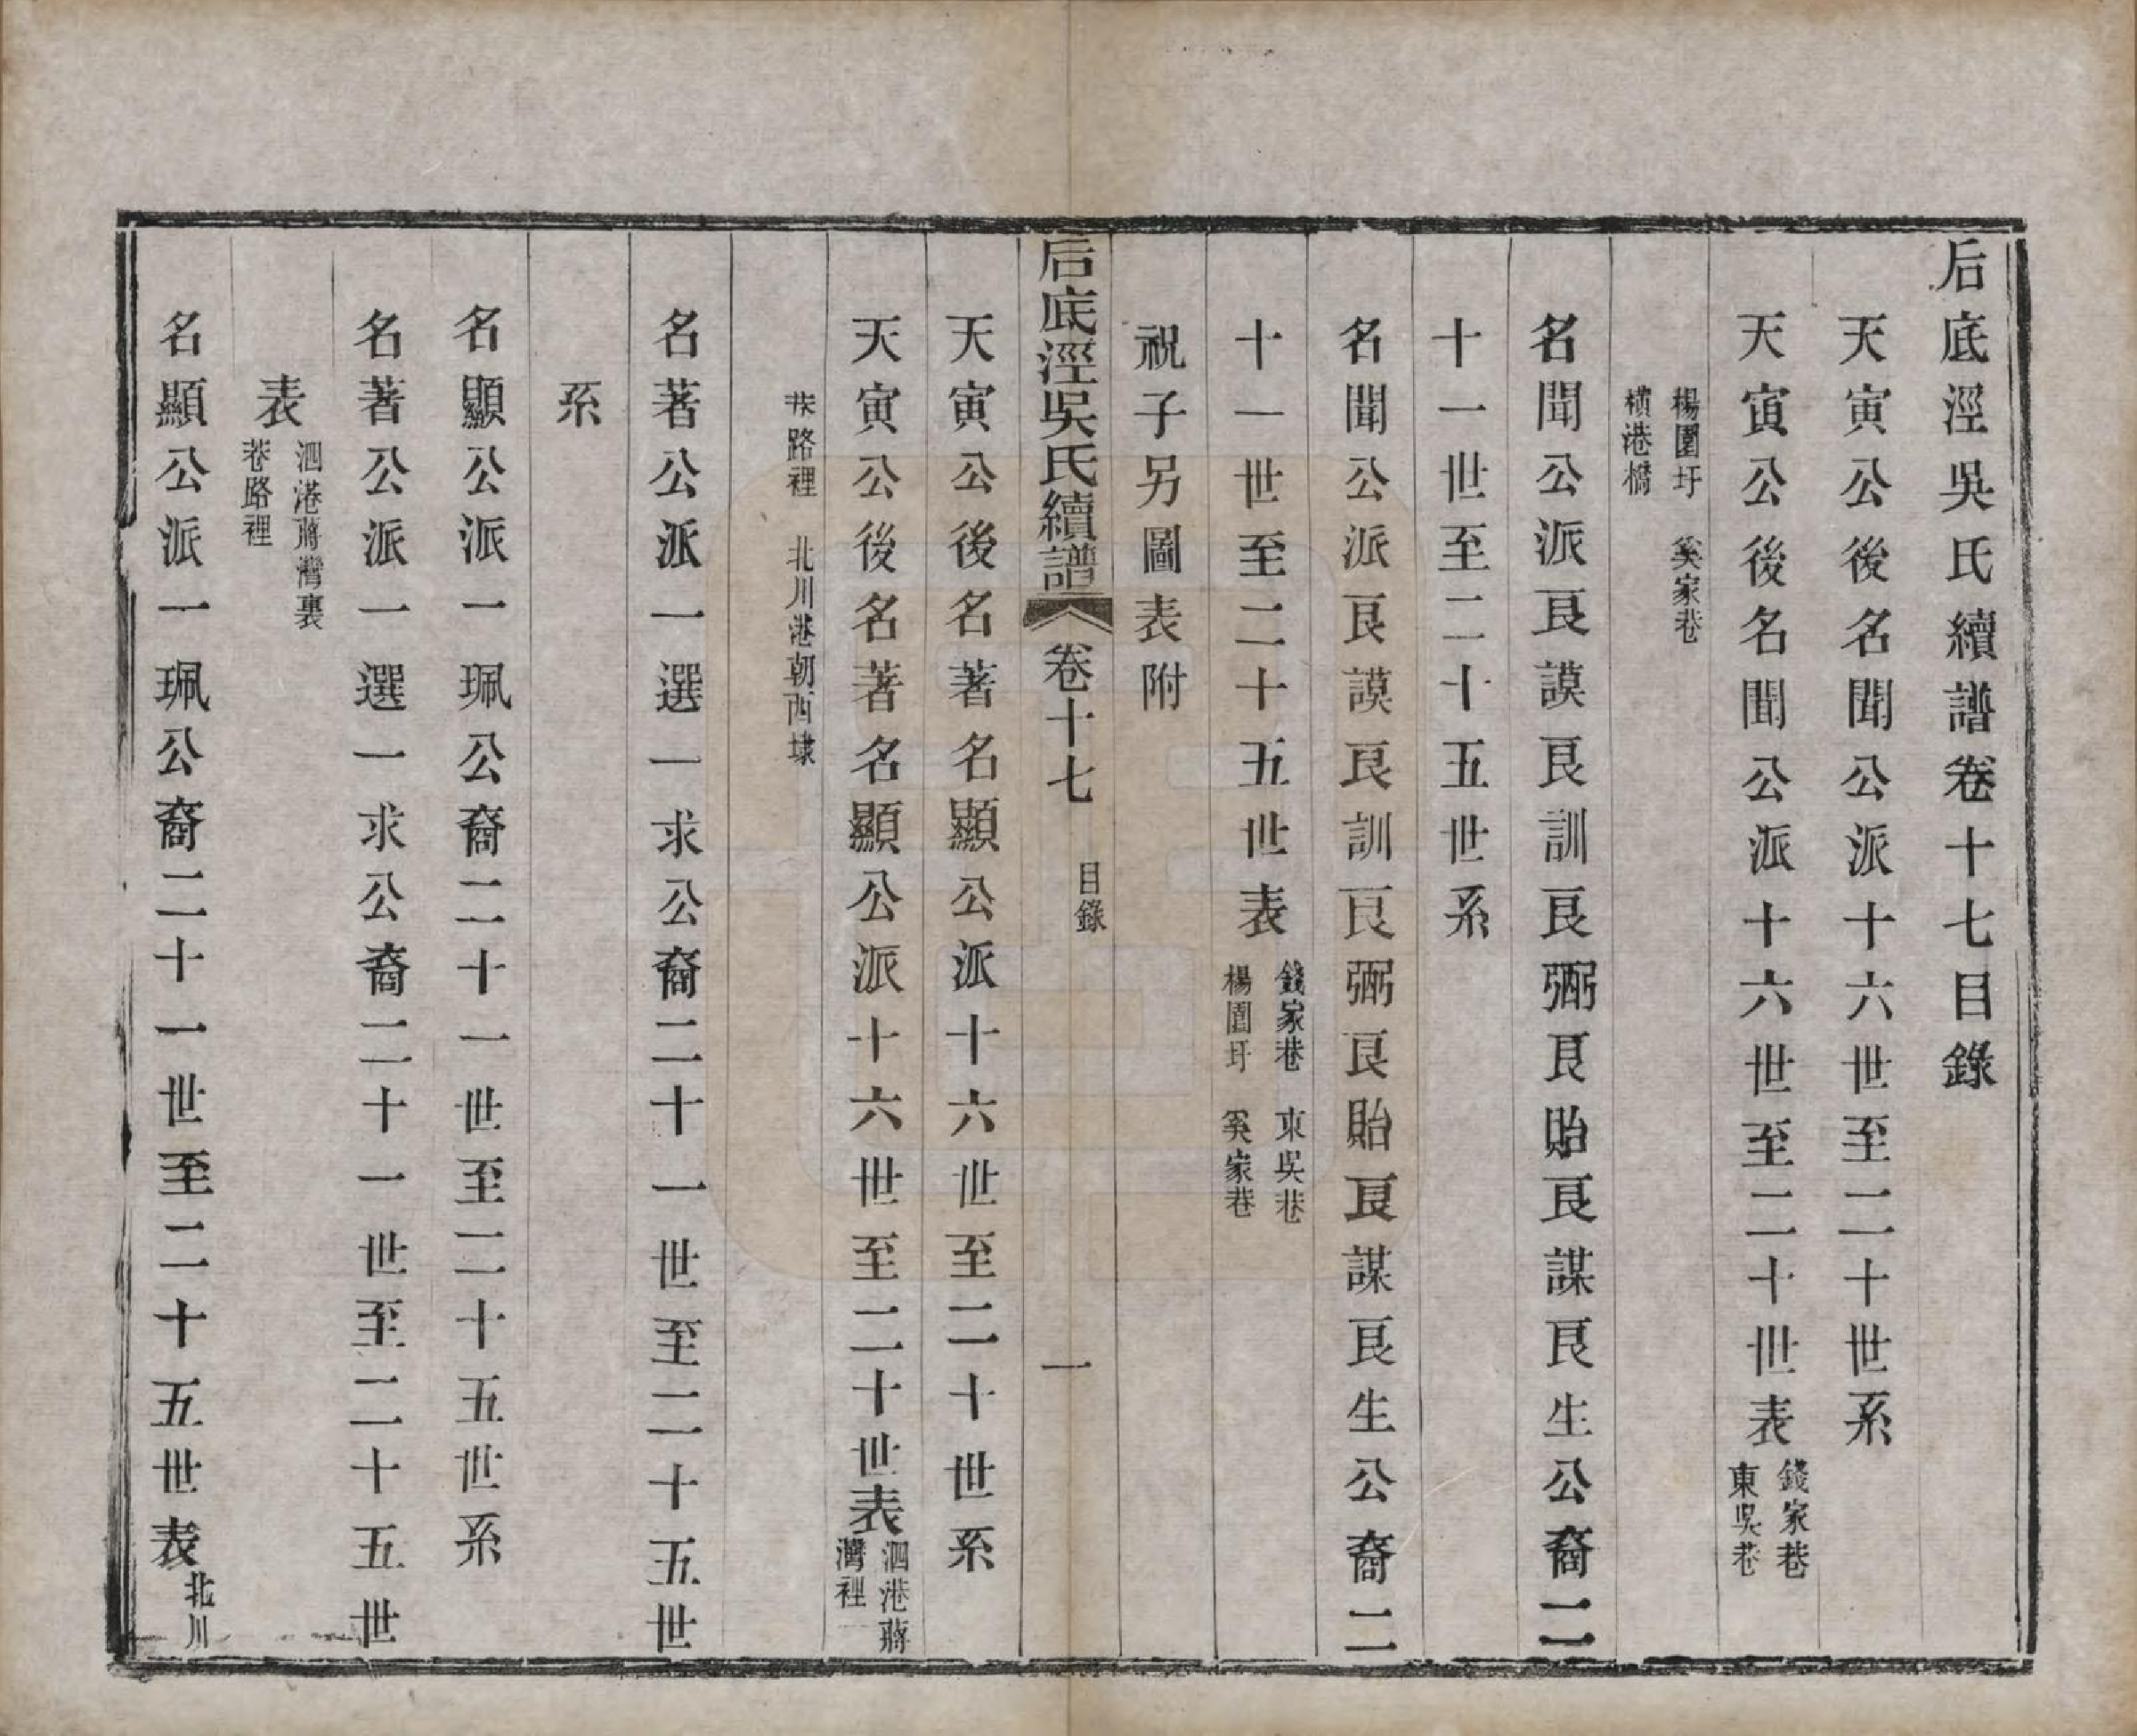 后底涇吳氏續譜卷十七目錄
天寅公後名聞公派十六世至二十世系
天寅公後名聞公派十六世至二十世表 錢家巷 東吳巷
楊園圩 奚家巷 橫港橋
名聞公派艮謨艮訓艮弼艮貽艮謀艮生公裔二
十一世至二十五世系
名聞公派艮謨艮訓艮弼艮貽艮謀艮生公裔二
十一世至二十五世表 錢家巷 東吳巷 楊園圩 奚家巷
祝子另圖表附
后底涇吳氏續譜 卷十七 目錄 一
天寅公後名著名顯公派十六世至二十世系
天寅公後名著名顯公派十六世至二十世表 泗港蔣灣裡
巷路裡 北川港朝西埭
名著公派一選一求公裔二十一世至二十五世
系
名顯公派一珮公裔二十一世至二十五世系
名著公派一選一求公裔二十一世至二十五世
表 泗港蔣灣裏 巷路裡
名顯公派一珮公裔二十一世至二十五世表 北川